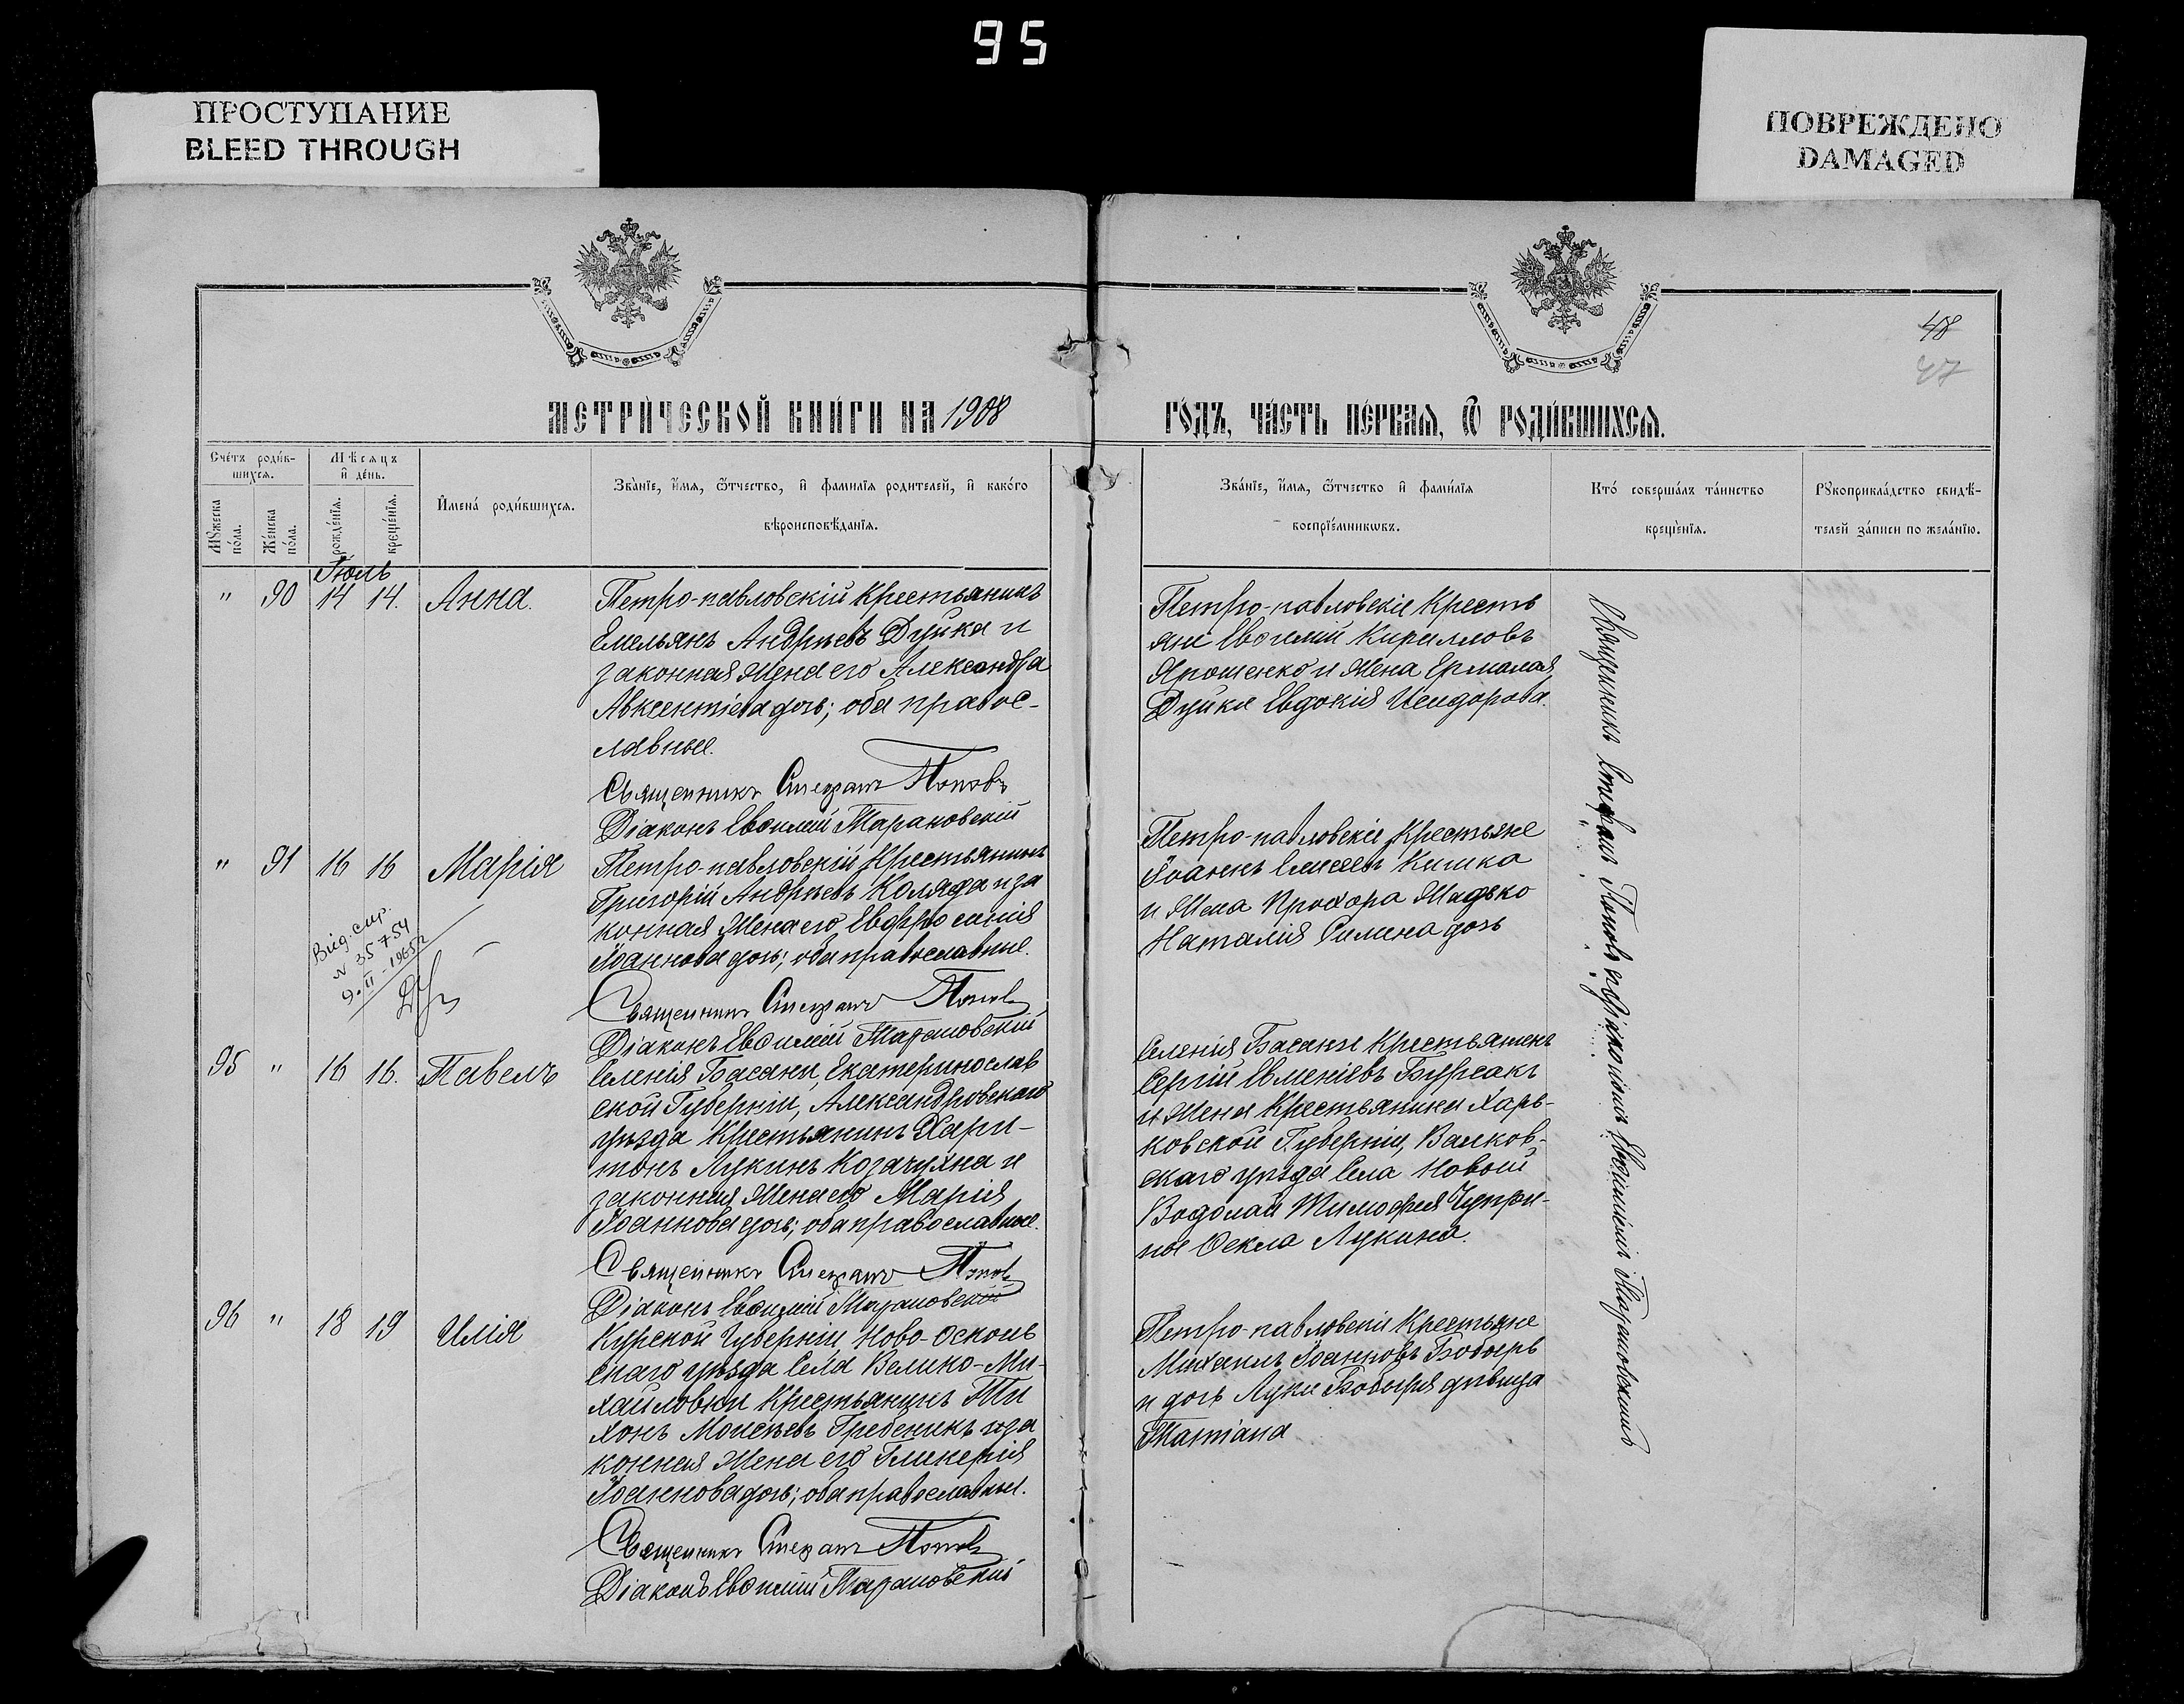 95
ПРОСТУПАНИЕ
BLEED THROUGH
ПОВРЕЖДЕНО
DAMAGED
48
47
МЕТРИ́ЧЕСКОЙ КНИ́ГИ НА 1908
ГО́ДЪ, ЧА́СТЬ ПЕ́РВАѦ, Ѿ РОДИ́ВШИХСѦ.
Счéтъ роди́в-
шихсѧ.
Мꙋжеска по́ла.
Же́нска по́ла.
Мѣсѧцъ
и҆ де́нь.
рожде́нїѧ.
креще́нїѧ.
И҆мена́ роди́вшихсѧ.
Зва́нїе, и҆́мѧ, ѻ҆́тчество, и҆ фами́лїѧ роди́телей, и҆ како́гѡ
вѣроисповѣ́данїѧ.
Зва́нїе, и҆́мѧ, ѻ҆́тчество и҆ фами́лїѧ
воспрїе́мникѡвъ.
Кто̀ соверша́лъ та́инство
креще́нїѧ.
Рꙋкоприкла́дство свидѣ́-
телей за́писи по жела́нїю.
Іюль
" 90 14 14. Анна.
Петро-павловскій Крестьянинъ
Емельянъ Андреевъ Дуйка и
законная жена его Александра
Авксентіева дочь; оба правос-
лавные.
Священникъ Стефанъ Поповъ
Діаконъ Евѳимій Тарановскій
Петро-павловскіе Кресть
яни Евѳимій Кирилловъ
Ярошенко и жена Ермолая
Дуйки Евдокія Исидорова.
" 91 16 16 Марія
Петро-павловскій Крестьянинъ
Григорій Андреевъ Коляда и за
конная жена его Евфросинія
Іоаннова дочь; оба православные.
Священникъ Стефанъ Поповъ
Діаконъ Евѳимій Тарановскій
Петро-павловскіе Крестьяне
Іоаннъ Елисеевъ Кишка
и жена Прохора
Наталія Силина дочь
N 35754
9. II - 1965 г
95 " 16 16. Павелъ
Селенія Басани, Екатеринослав
ской Губерніи, Александровскаго
уѣзда Крестьянинъ Хари-
тонъ Лукинъ Козачухна и
законная жена его Марія
Іоаннова дочь; оба православные.
Священникъ Стефанъ Поповъ
Діаконъ Евѳимій Тарановскій
Селенія Басани Крестьянинъ
Сергій Евменіевъ Бурсакъ
и жена Крестьянина Харь-
ковской Губерніи, Валков-
скаго уѣзда Села Новой
Водолаи Тимофея Чупри-
ны Ѳекла Лукина.
96 " 18 19 Илія
Курской Губерніи, Ново-Осколь
скаго уѣзда Села Велико-Ми-
хайловки Крестьянинъ Ти
хонъ Моисѣевъ Гребеникъ и за
конная жена его Гликерія
Іоаннова дочь; оба православные.
Священникъ Стефанъ Поповъ
Діаконъ Евѳимій Тарановскій
Петро-павловскіе Крестьяне
Михаилъ Іоанновъ Бобырь
и дочь Луки Бобыря дѣвица
Татіана
Священникъ Стефанъ Поповъ съ діакономъ Евѳиміемъ Тарановскимъ